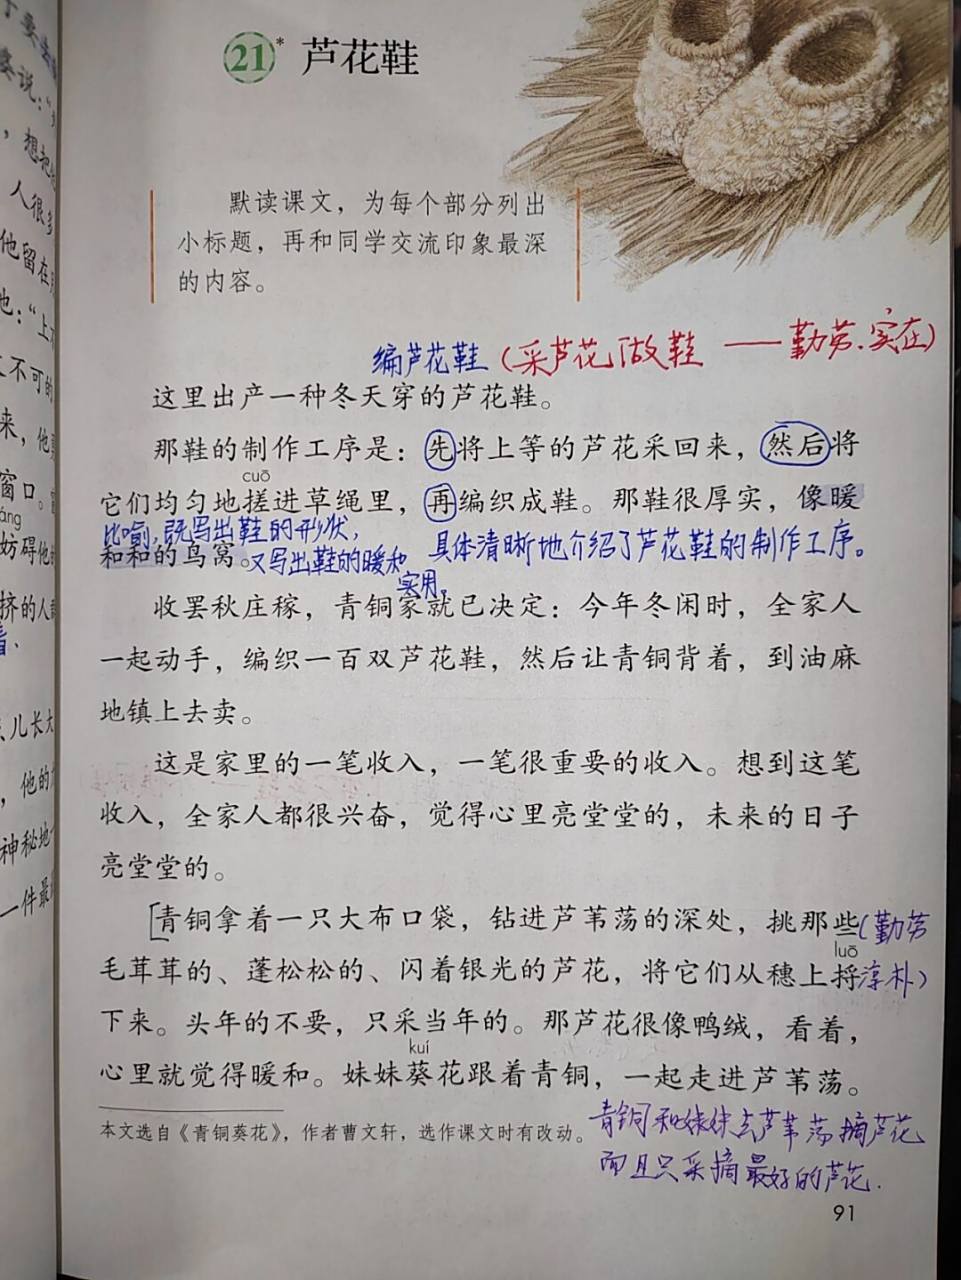 21* 芦花鞋
默读课文，为每个部分列出
小标题，再和同学交流印象最深
的内容。
编芦花鞋（采芦花做鞋 ——勤劳.实在）
这里出产一种冬天穿的芦花鞋。
那鞋的制作工序是：先将上等的芦花采回来，然后将
cuō
它们均匀地搓进草绳里，再编织成鞋。那鞋很厚实，像暖
比喻,既写出鞋的形状,
和和的鸟窝。又写出鞋的暖和 具体清晰地介绍了芦花鞋的制作工序。
实用,
收罢秋庄稼，青铜家就已决定：今年冬闲时，全家人
一起动手，编织一百双芦花鞋，然后让青铜背着，到油麻
地镇上去卖。
这是家里的一笔收入，一笔很重要的收入。想到这笔
收入，全家人都很兴奋，觉得心里亮堂堂的，未来的日子
亮堂堂的。
[青铜拿着一只大布口袋，钻进芦苇荡的深处，挑那些（勤劳
luō
毛茸茸的、蓬松松的、闪着银光的芦花，将它们从穗上捋淳朴）
下来。头年的不要，只采当年的。那芦花很像鸭绒，看着，
kuí
心里就觉得暖和。妹妹葵花跟着青铜，一起走进芦苇荡。
本文选自《青铜葵花》，作者曹文轩，选作课文时有改动。
青铜和妹妹去芦苇荡摘芦花
而且只采摘最好的芦花.
91
婆说：“
，想把他
人很多
他留在
他：“上
不可的
来，他
窗口。
áng
妨碍他
挤的人
儿长大
，他的
神秘地
一件最